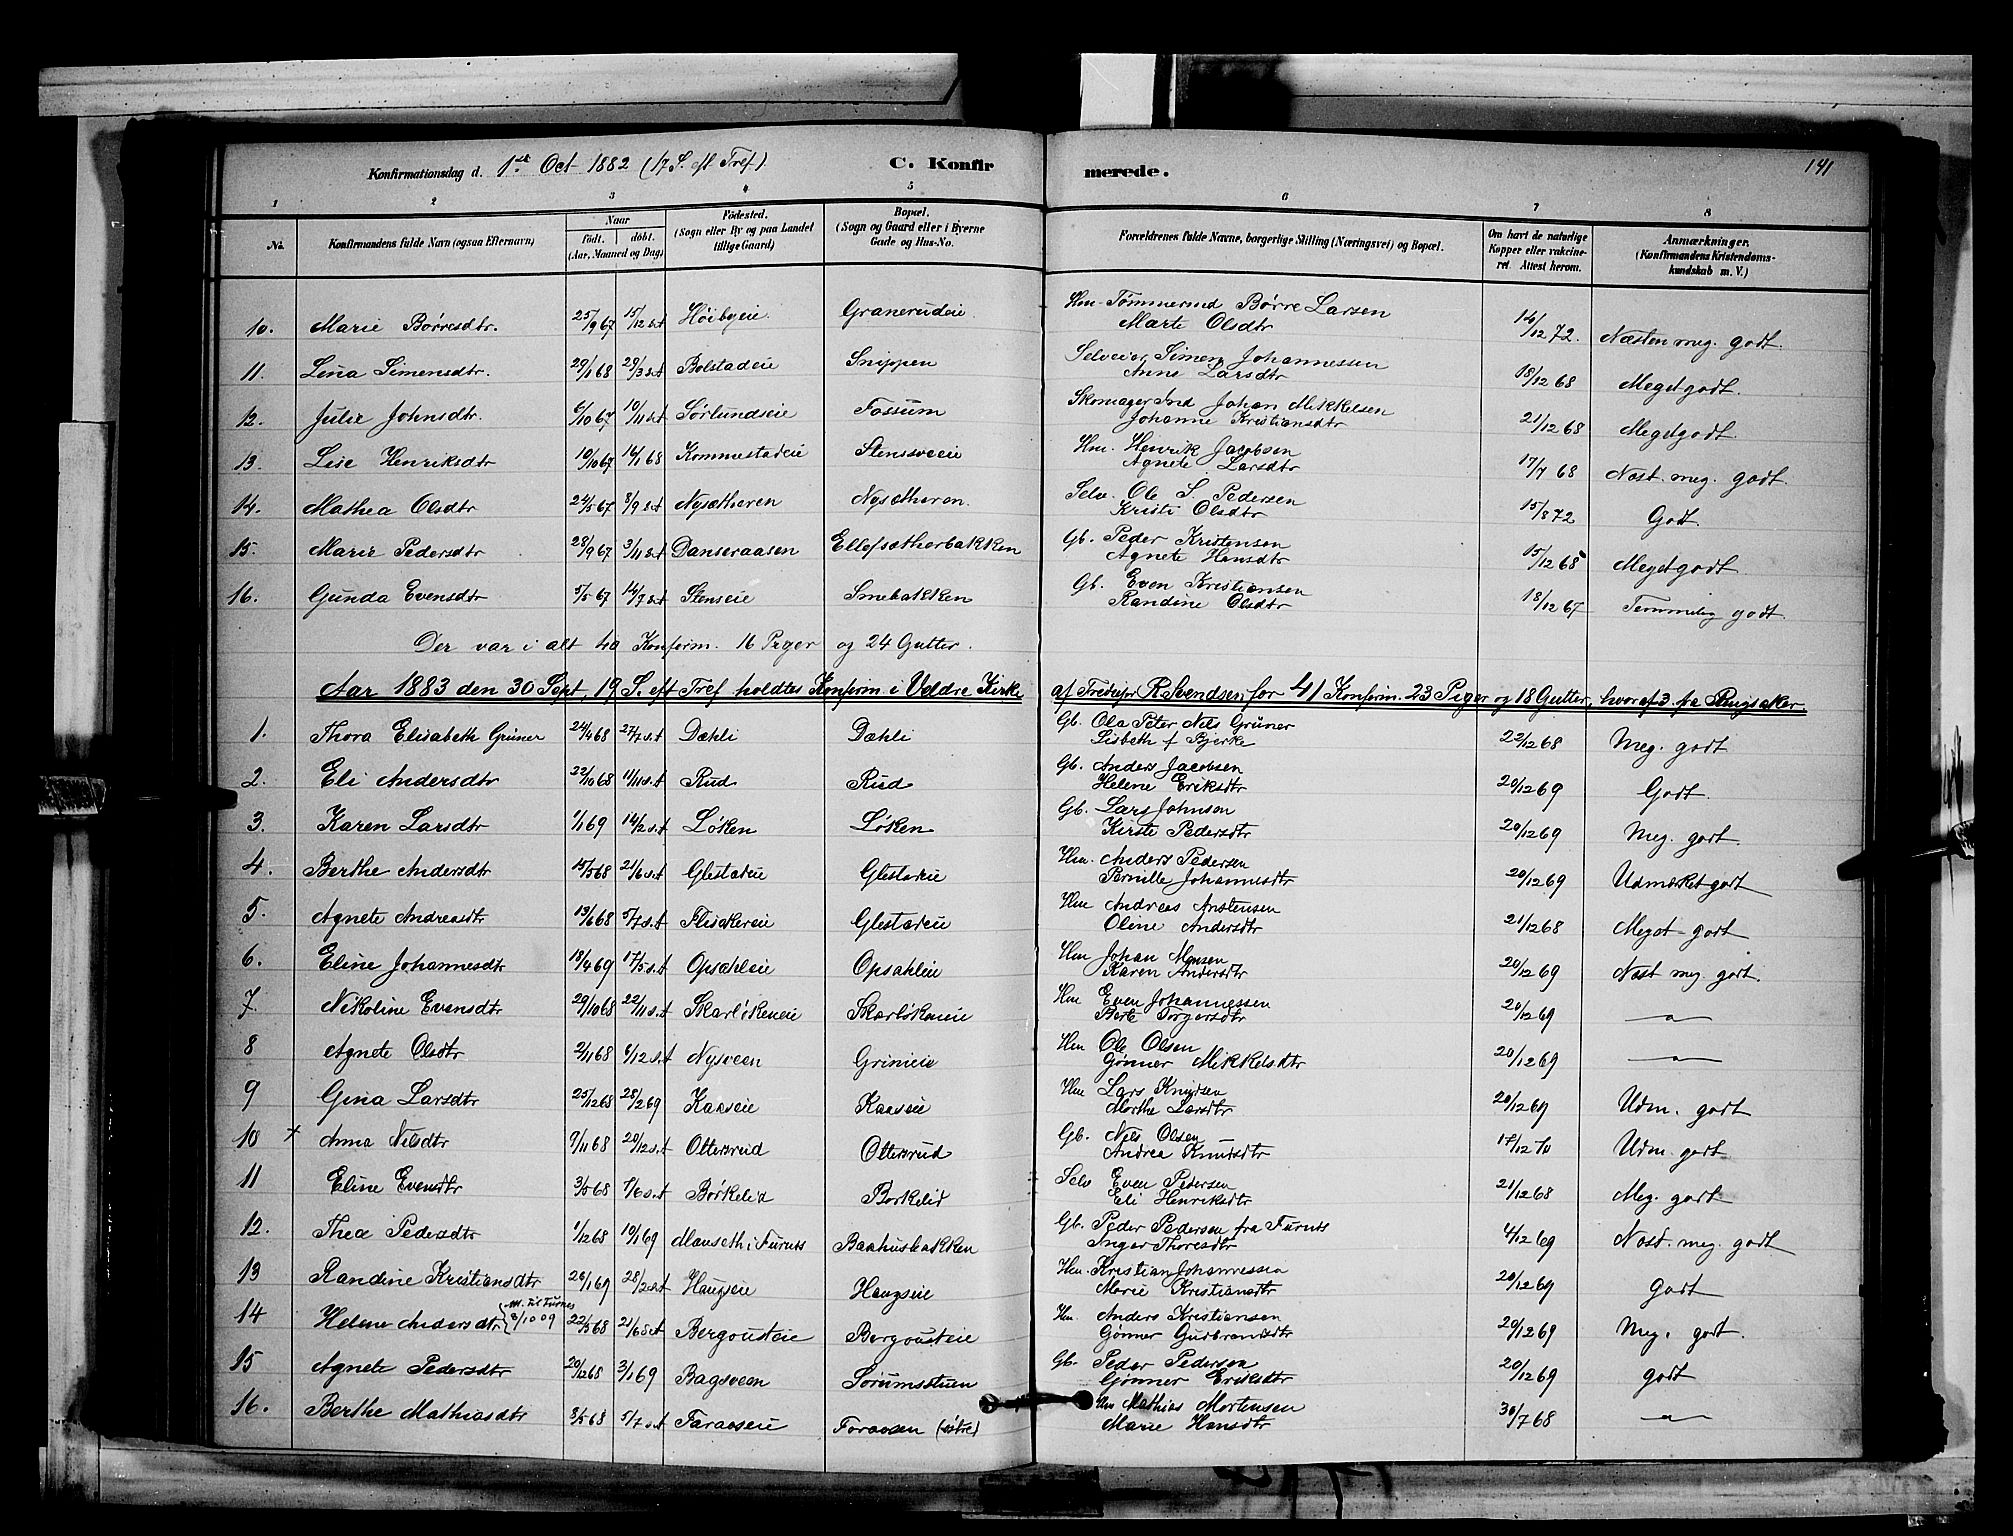 Konfirmationsdag d. 1ste Oct 1882 (17 S. eft Tref) C. Konfir merede. 141
1 2 3 4 5 6 7 8
No. Konfirmandens fulde Navn (ogsaa Efternavn) Naar født. døbt. (Aar, Maaned og Dag) Fødested. (Sogn eller By og paa Landet tillige Gaard) Bopæl. (Sogn og Gaard eller i Byerne Gade og Hus-No. Forældrenes fulde Navne, borgerlige Stilling (Næringsvei) og Bopæl. Om havt de naturlige Kopper eller vakcineret. Attest herom. Anmærkninger. (Konfirmandens Kristendomskundskab m. V.)
10. Marie Børresdtr. 25/9 67 15/12 s.t Høibyeie. Granerudeie. Hm. Tømmermd Børre Larsen Marte Olsdtr 14/12 72. Næsten meg. godt.
11. Lina Simensdtr. 29/1 68 29/3 s.t Bolstadeie Snippen Selveier Simen Johannessen Anne Larsdtr 18/12 68 Meget godt.
12. Julie Johnsdtr. 6/10 67 10/11 s.t Sørlundseie Fossum Skomager Ind Johan Mikkelsen Johanne Kristiansdtr 21/12 68 Meget godt.
13. Lise Henriksdtr 10/10 67 16/1 68 Kommestadeie Stensveeie Hm. Henrik Jacobsen Agnete Larsdtr 17/7 68 Næst. meg. godt.
14. Mathea Olsdtr 24/5 67 8/9 s.t Nysætheren Nysætheren. Selv. Ole S. Pedersen Kristi Olsdtr 15/8 72 Godt.
15. Marie Pedersdtr 28/9 67 3/11 s.t Danseraasen Ellefsætherbakken Gb. Peder Kristensen Agnete Hansdtr 15/12 68 Meget godt.
16. Gunda Evensdtr 5/5 67 14/7 s.t Stenseie Smebakken Gb. Even Kristiansen Randine Olsdtr 18/12 67 Temmelig godt.
Der var i alt 40 Konfirm. 16 Piger og 24 Gutter.
Aar 1883 den 30 Sept, 19 S. eft Tref holdtes Konfirm i Veldre Kirke af R. Svendsen, for 41 Konfirm. 23 Piger og 18 Gutter, hvoraf 3 fra Ringsaker.
1. Thora Elisabeth Grüner 24/4 68 27/7 s.t Dæhli Dæhli Gb. Ole Peter Nils Grüner Lisbeth f Bjerke 22/12 68 Meg. godt
2. Eli Andersdtr 22/10 68 11/11 s.t Rud Rud Gb. Anders Jacobsen Helene Eriksdtr 20/12 69 Godt.
3. Karen Larsdtr 1/1 69 14/2 s.t Løken Løken Gb. Lars Johnson Kirste Pedersdtr 20/12 69 Meg. godt
4. Berthe Andersdtr 15/5 68 21/6 s.t Glestadeie Glestadeie Hm. Anders Pedersen Pernille Johannesdtr 20/12 69 Udmærket godt
5. Agnete Andreasdtr 13/6 68 5/7 s.t Flisakereie Glestadeie Hm Andreas Anstensen Oline Andersdtr 21/12 68 Meget godt
6. Eline Johannesdtr 18/4 69 17/5 s.t Opsahleie Opsahleie Hm Johan Monsen Karen Andersdtr 20/12 69 Næst meg. godt.
7 Nikoline Evensdtr 29/10 68 22/11 s.t Skarløkeneie Skarløkeneie Hm Even Johannessen Berte Torgersdtr 20/12 69 —〃—
8 Agnete Olsdtr 2/11 68 6/12 s.t Nysveen Grimeie Hm Ole Olsen Gønner Mikkelsdtr 20/12 69 —〃—
9 Gina Larsdtr 25/12 68 28/2 69 Kaaseie Kaaseie Hm Lars Knudsen Marthe Larsdtr 20/12 69 Udm. godt
10 + Anna Nilsdtr 9/11 68 20/12 s.t Ottersrud Ottersrud Gb. Nils Olsen Andrea Knudsdtr 17/12 70 Udm. godt
11 Eline Evensdtr 3/5 68 7/6 s.t Børkelid Borkelid Selv Even Pedersen Eli Henriksdtr 21/12 68 Meg. godt
12. Thea Pedersdtr 1/12 68 10/1 69 Manseth i Furnes Baahusbakken Gb. Peder Pedersen fra Furnes Inger Thoresdtr 4/12 69 Næst. meg. godt
13 Randine Kristiansdtr 26/1 69 28/2 s.t Haugseie Haugseie Hm. Kristian Johannessen Marie Kristiansdtr 20/12 69 godt
14 Helene Andersdtr {Utm. til Furnes 8/10 09 22/5 68 21/6 s.t Bergousteie Bergousteie Hm. Anders Kristiansen Gønner Gudbrandsdtr 20/12 69 Meg. godt.
15 Agnete Pedersdtr 20/12 68 3/1 69 Bagsveen Sorumsstuen Gb. Peder Pedersen Gønner Eriksdtr 20/12 69 godt
16. Berthe Mathiasdtr 3/5 68 5/7 s.t Faraaseie Foraasen (østre) Hm Mathias Mortensen Marie Hansdtr 30/7 68 —〃—